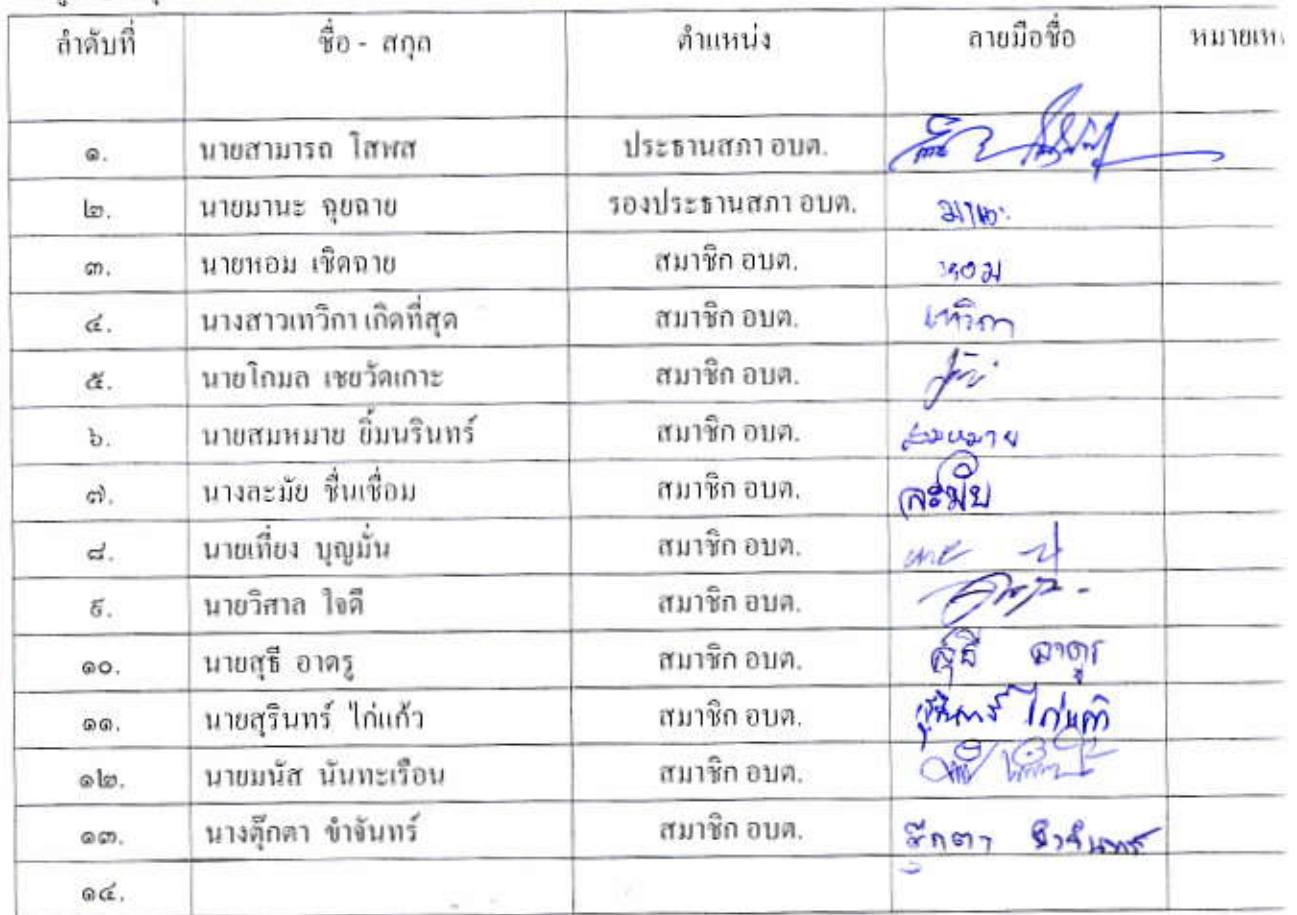 ลำดับที่ ชื่อ - สกุล ตำแหน่ง ลายมือชื่อ
๑. นายสามารถ โสพส ประธานสภา อบต.
๒. นายมานะ ฉุยฉาย รองประธานสภา อบต. มานะ
๓. นายหอม เชิดฉาย สมาชิก อบต. หอม
๔. นางสาวเทวิกา เกิดที่สุด สมาชิก อบต. เทวิกา
๕. นายโกมล เชยวัดเกาะ สมาชิก อบต.
๖. นายสมหมาย ยิ้มนรินทร์ สมาชิก อบต. สมหมาย
๗. นางละมัย ชื่นเชื่อม สมาชิก อบต. ละมัย
๘. นายเที่ยง บุญมั่น สมาชิก อบต.
๙. นายวิศาล ใจดี สมาชิก อบต.
๑๐. นายสุธี อาดรู สมาชิก อบต. สุธี
๑๑. นายสุรินทร์ ไก่แก้ว สมาชิก อบต. สุรินทร์ ไก่แก้ว
๑๒. นายมนัส นันทะเรือน สมาชิก อบต.
๑๓. นางตุ๊กตา ขำจันทร์ สมาชิก อบต.
๑๔.